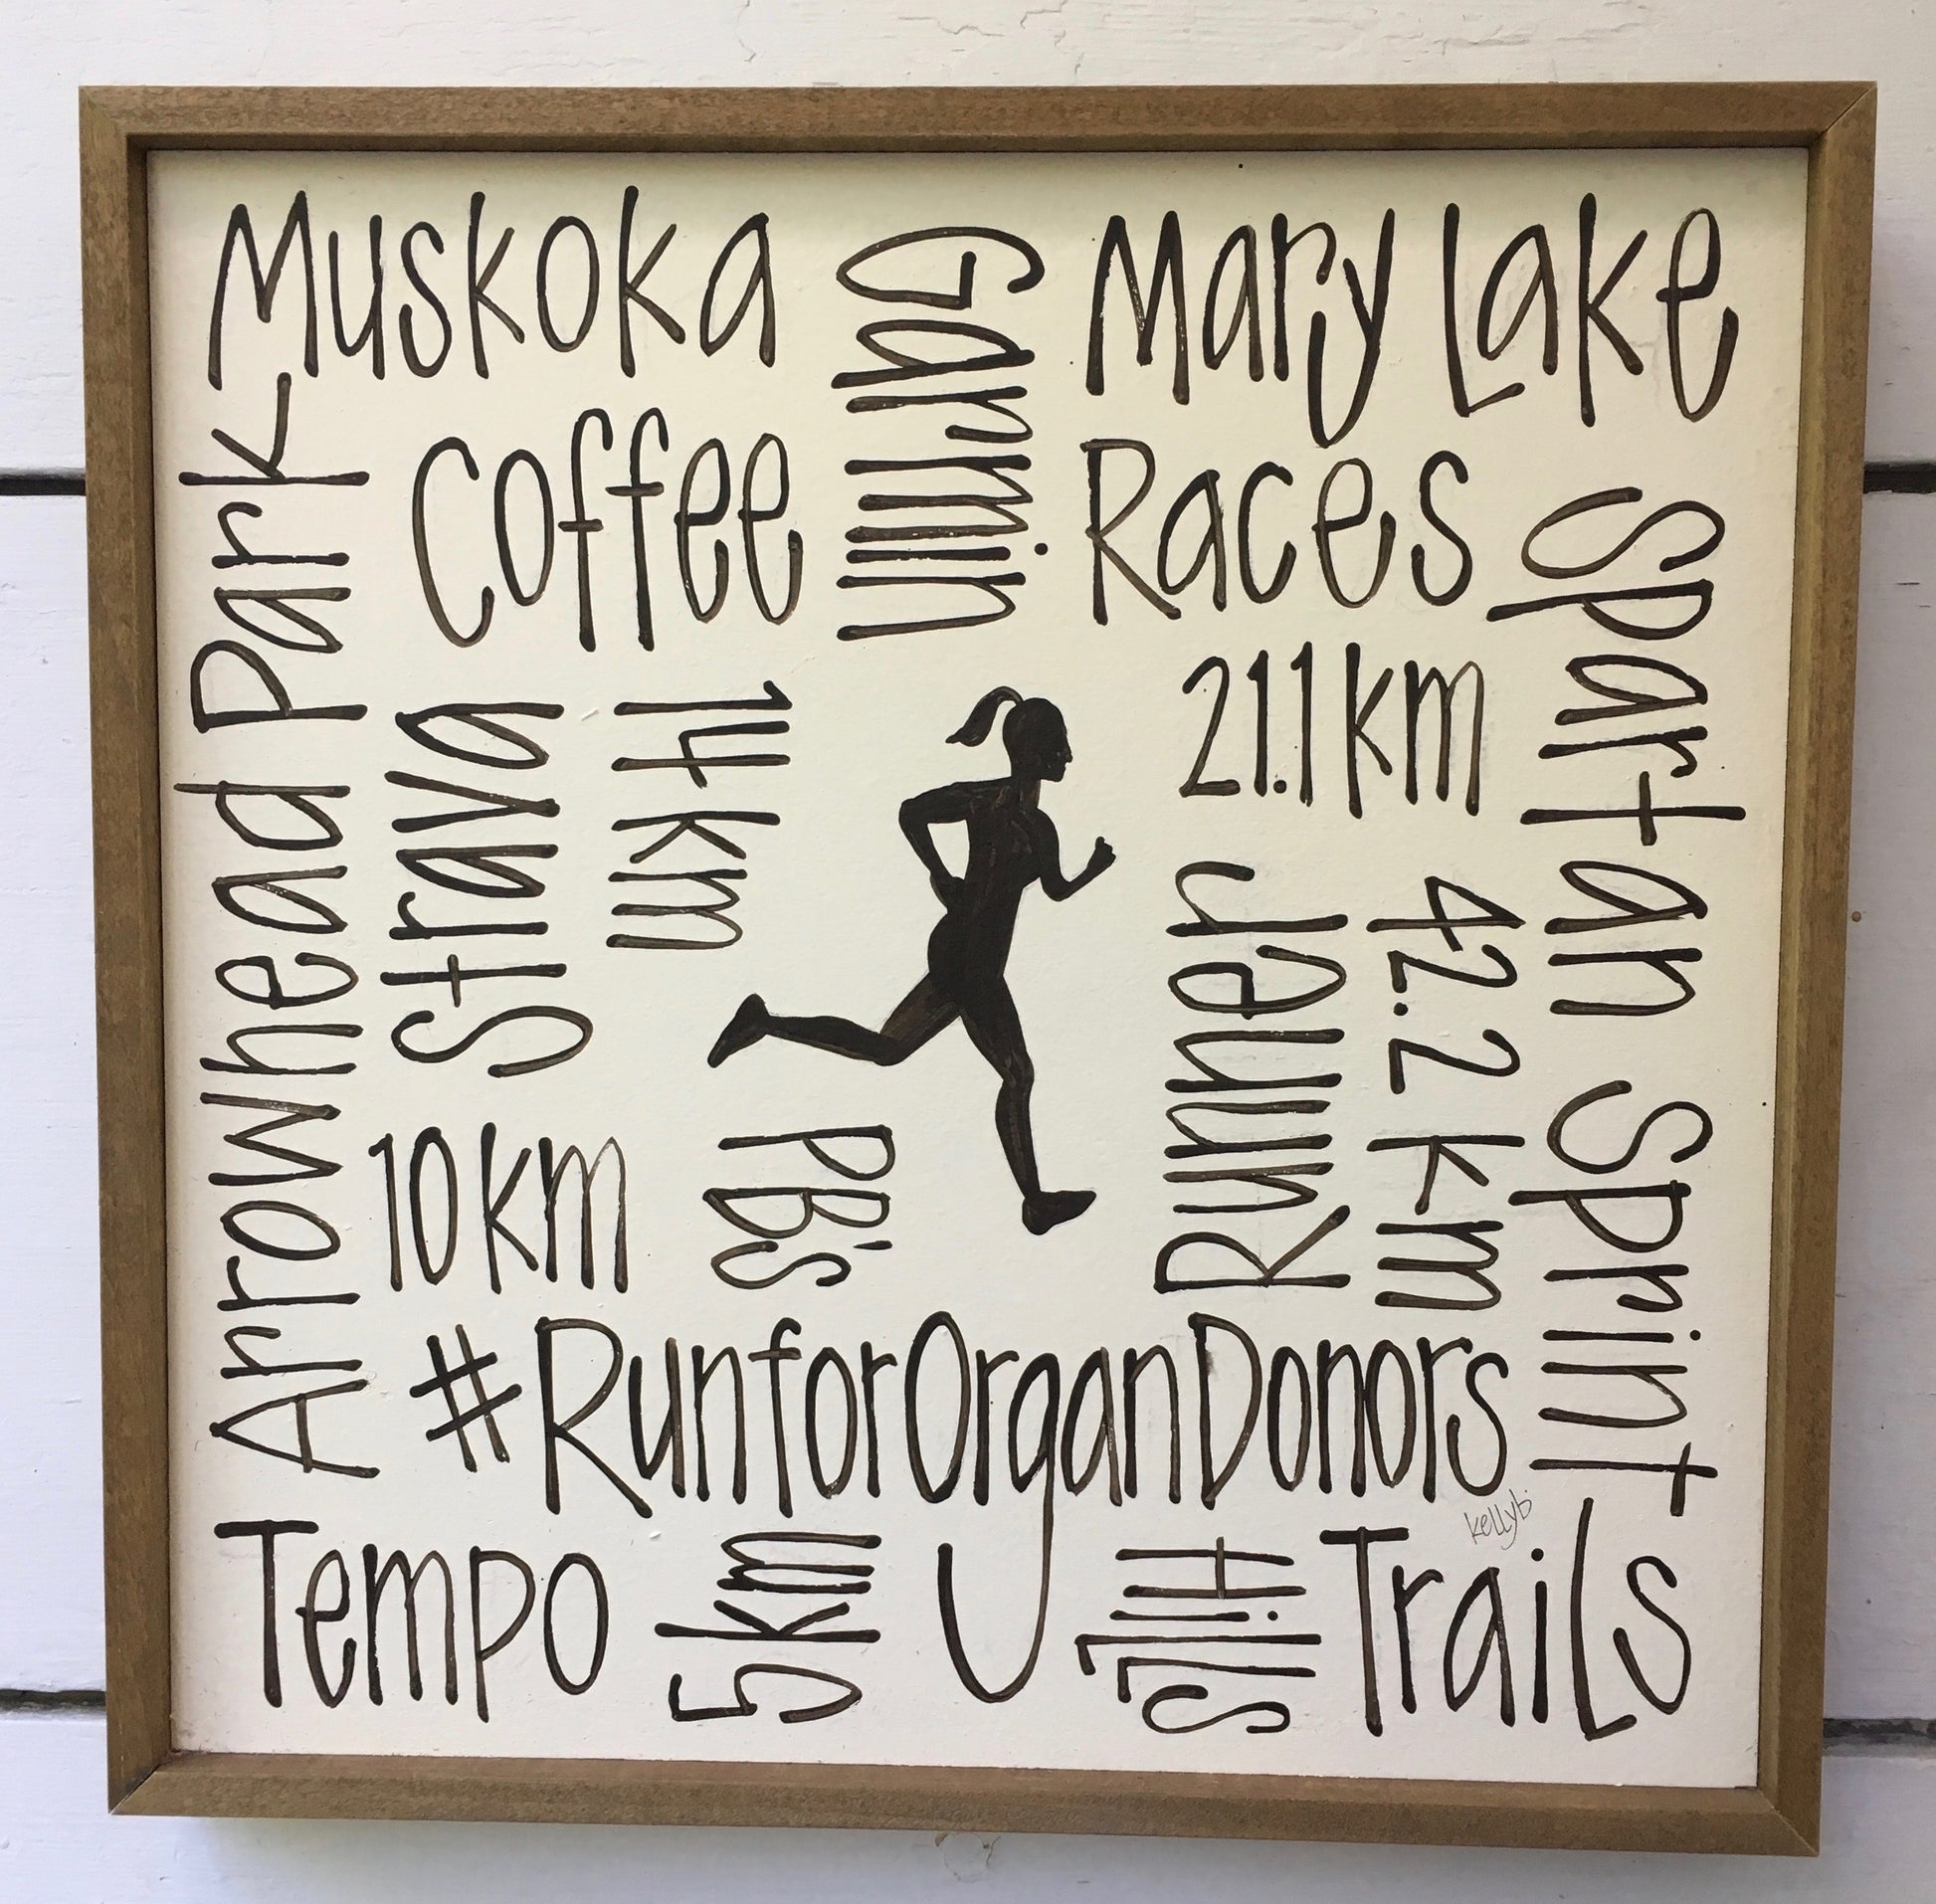 Muskoka
Garmin
Mary Lake
Coffee
Races
Arrowhead Park
Strava
14 km
21.1 km
Spartan Sprint
Runner
42.2 km
10 km
PB's
#RunforOrganDonors
kellyb.
Tempo
5 km
Hills
Trails